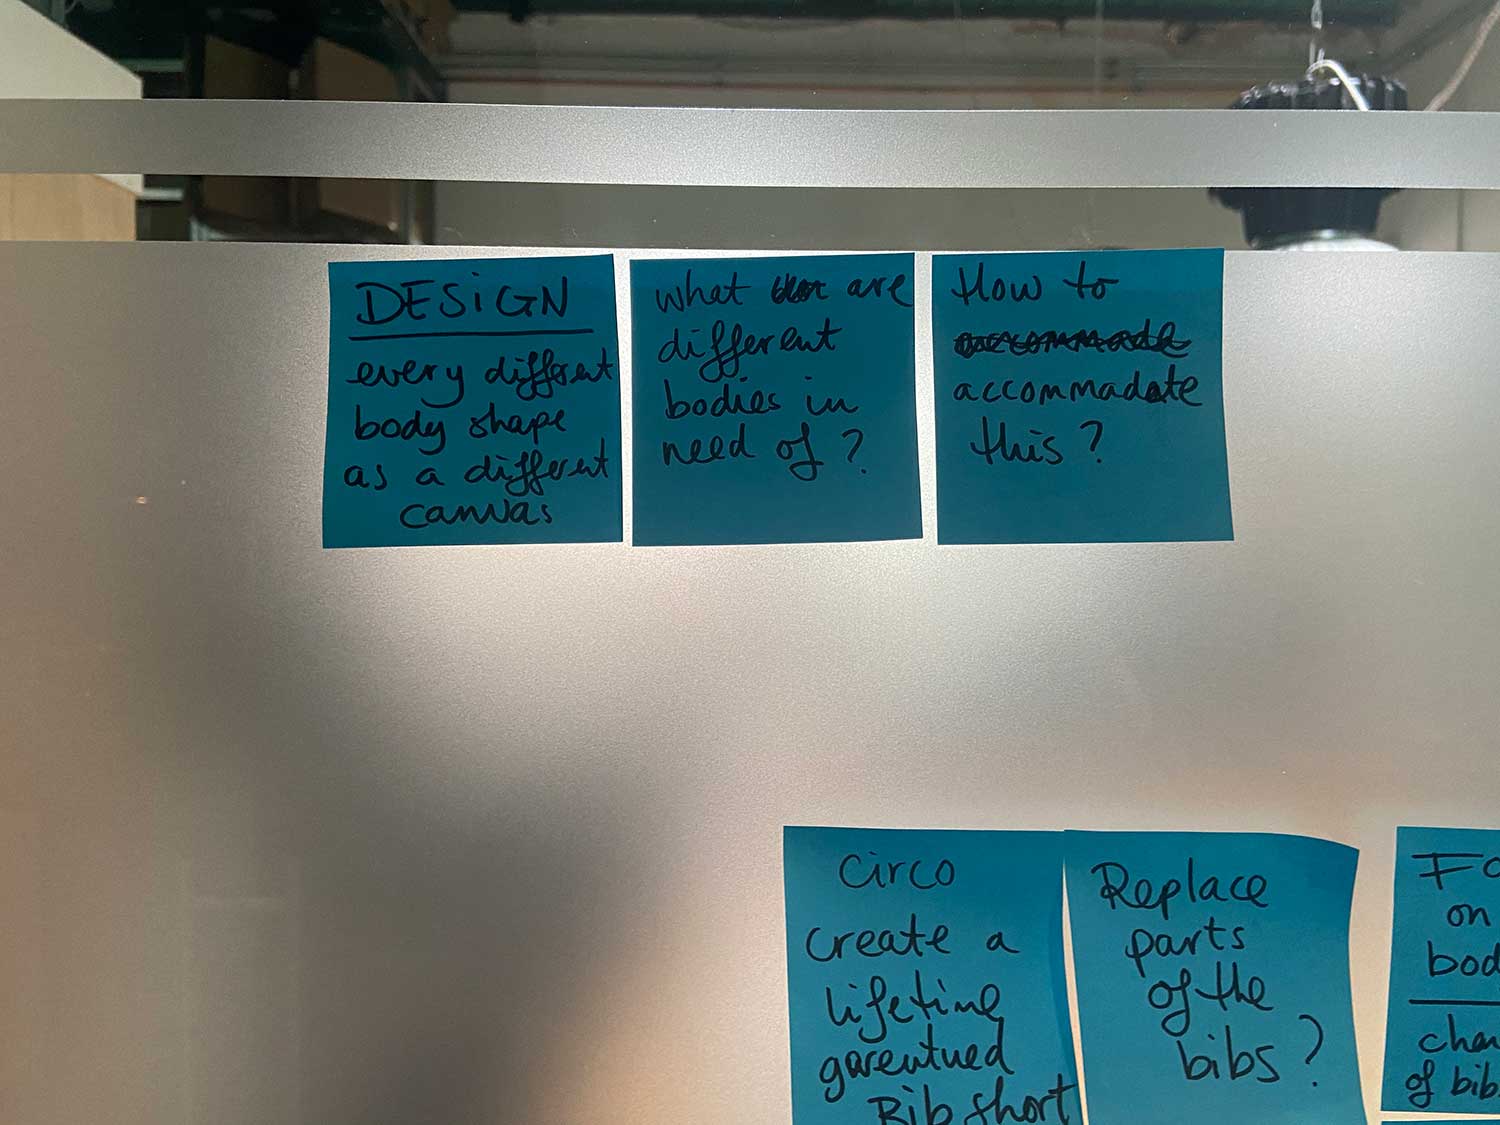 DESiGN
every different
body shape
as a different
canvas
what are
different
bodies in
need of?
How to
accommade
accommadate
this?
Circo
create a
lifetime
garentued
Bib short
Replace
parts
of the
bibs?
Fo
on
bod
chan
of bib